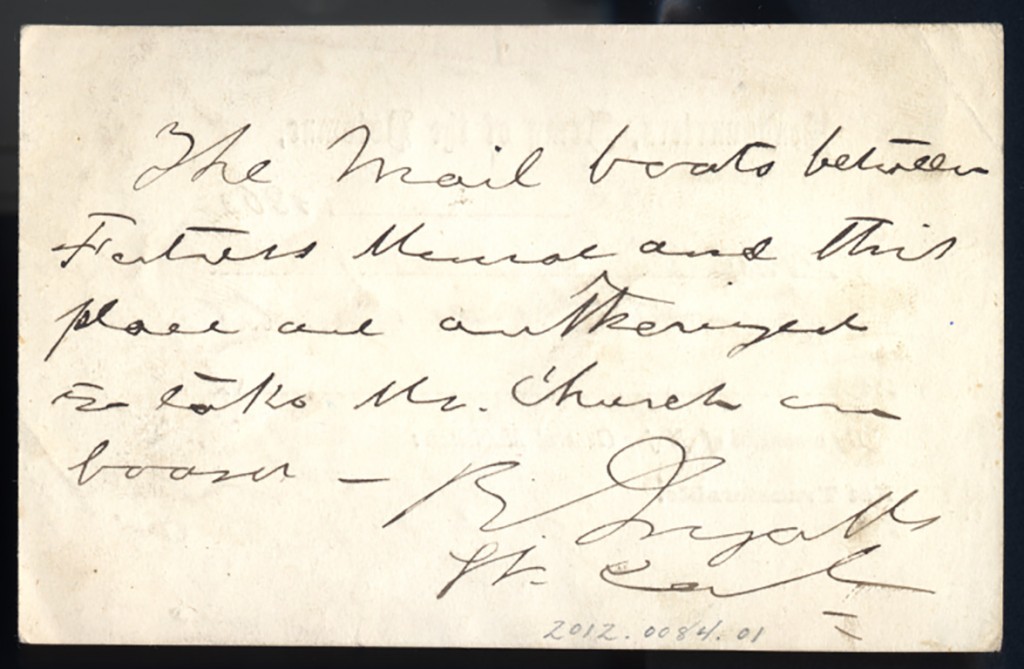 The Mail boats between
Fortress Monroe and this
place are authorized
to take Mr. Church on
board — R. Ingalls
Lt. Col
2012.0084.01